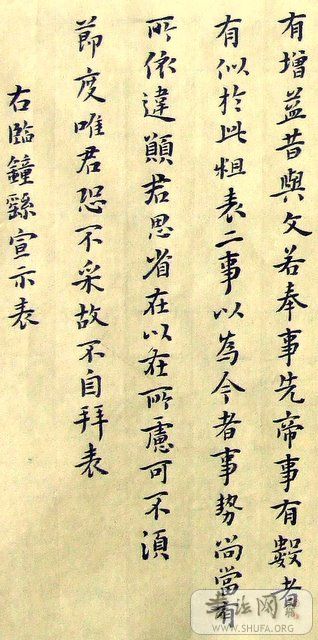 有增益昔與文若奉事先帝事有數者
有似於此粗表二事以為今者事勢尚當有
所依違願君思省在以在所慮可不須
節度唯君恐不采故不自拜表
右臨鐘繇宣示表
书法网
WWW.SHUFA.ORG